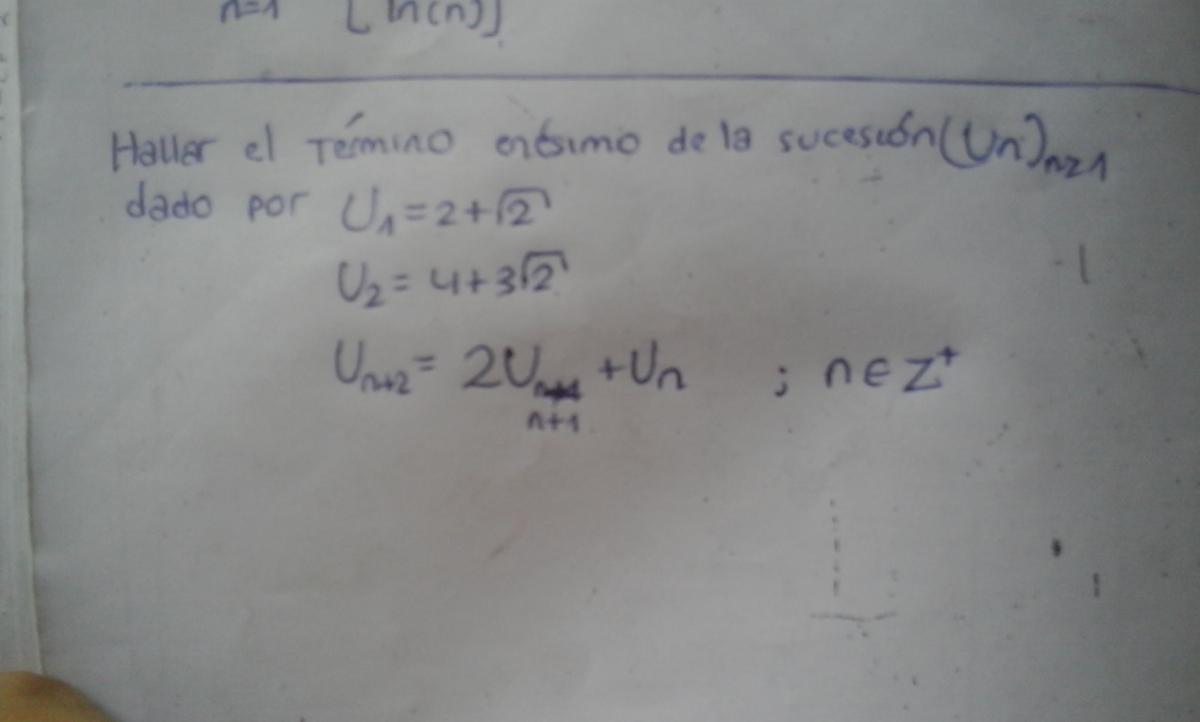 n=1 [ln(n)]
Hallar el término enésimo de la sucesión (Un)n≥1
dado por U1=2+√2
U2= 4+3√2
Un+2= 2Un+1 +Un ; n∈Z+